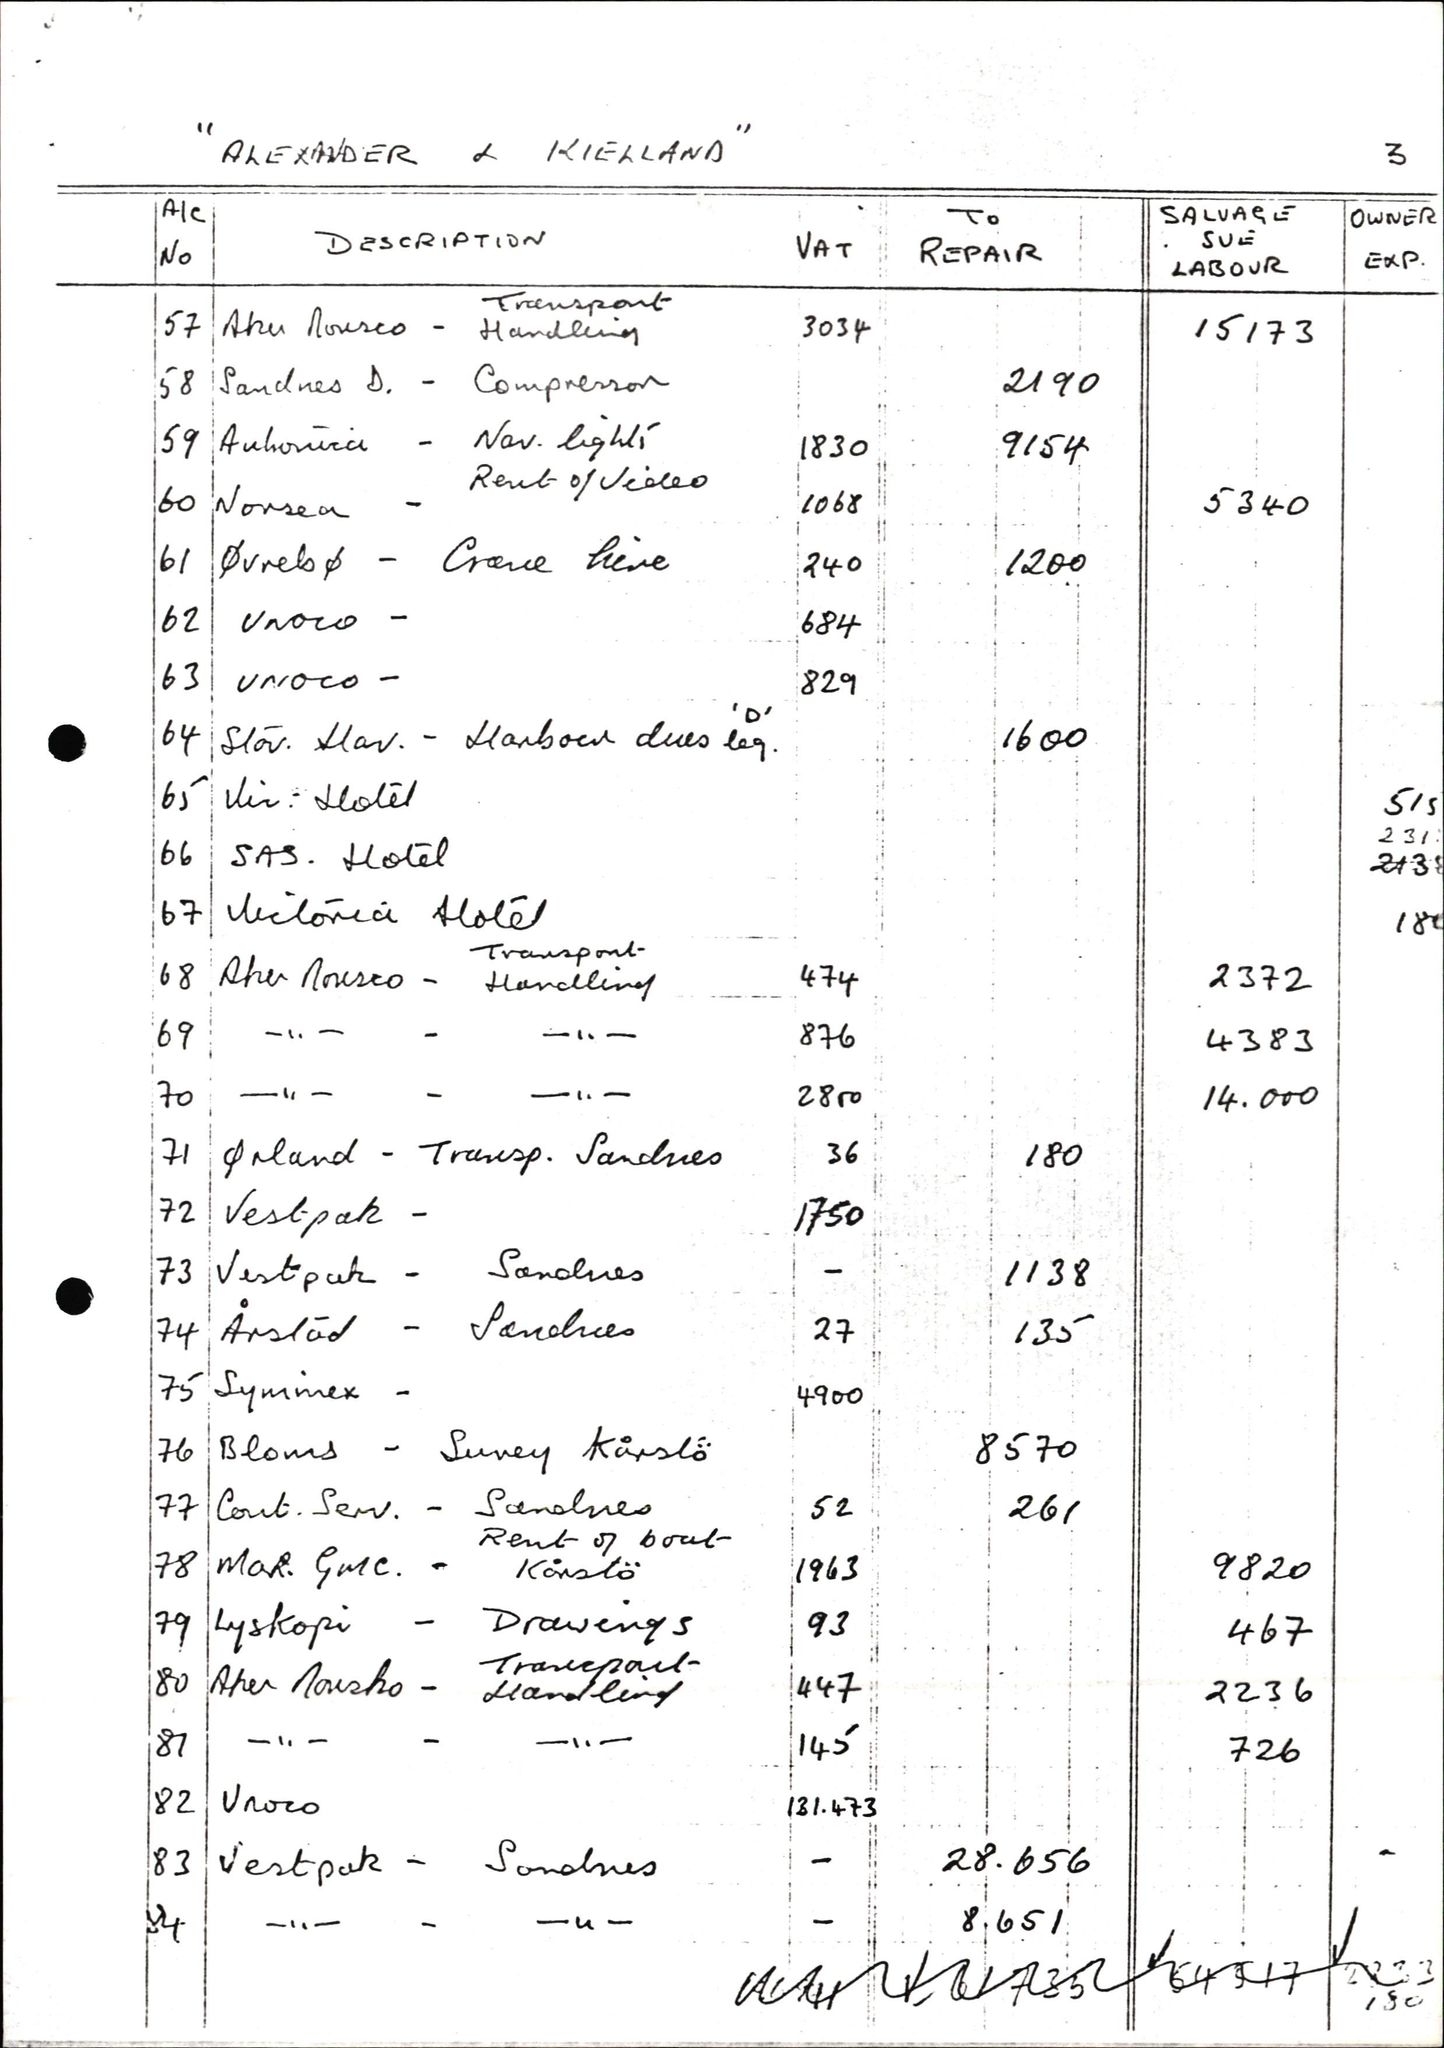 "ALEXANDER & KIELLAND" 3
A/c No DESCRIPTION VAT TO REPAIR SALVAGE SUE LABOUR OWNER EXP.
57 Aker Norsco - Transport Handling 3034 15173
58 Sandnes D. - Compressor 2190
59 Autronica - Nav. lights 1830 9154
60 Norsea - Rent of Video 1068 5340
61 Øvrebø - Crane hire 240 1200
62 Unoco - 684
63 Unoco - 829
64 Stav. Hav. - Harbour dues 'D' leg. 1600
65 Vic. Hotel 515
66 SAS. Hotel 231 2138
67 Victoria Hotel 180
68 Aker Norsco - Transport Handling 474 2372
69 —"— - —"— 876 4383
70 —"— - —"— 2800 14.000
71 Ørland - Transp. Sandnes 36 180
72 Vestpak - 1750
73 Vestpak - Sandnes - 1138
74 Årstad - Sandnes 27 135
75 Symmex - 4900
76 Bloms - Survey Kårstö 8570
77 Cont. Serv. - Sandnes 52 261
78 Mar. GMC. - Rent of boat Kårstö 1963 9820
79 Lyskopi - Drawings 93 467
80 Aker Norsko - Transport Handling 447 2236
81 —"— - —"— 145 726
82 Unoco 131.473
83 Vestpak - Sandnes - 28.656 -
84 —"— - —"— - 8.651
61735 54517 2233
180